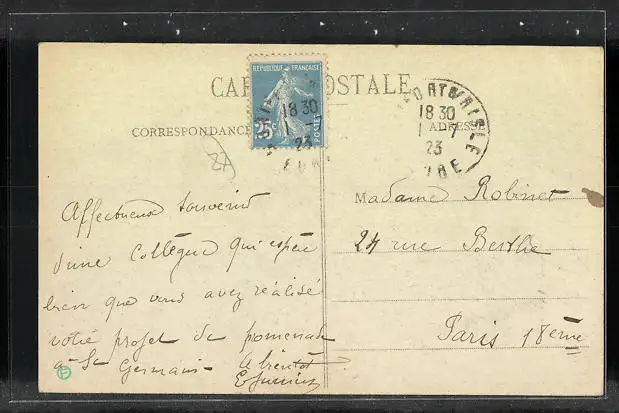 CARTE POSTALE
REPUBLIQUE FRANÇAISE
25c
POSTES
18 30
1 - 7
23
EURE
PONT AUDEMER
CORRESPONDANCE
ADRESSE
Affectueux souvenir
d'une collègue qui espère
bien que vous avez réalisé
votre projet de promenade
à St Germain. A bientôt
Madame Robinet
24 rue Berthe
Paris 18eme